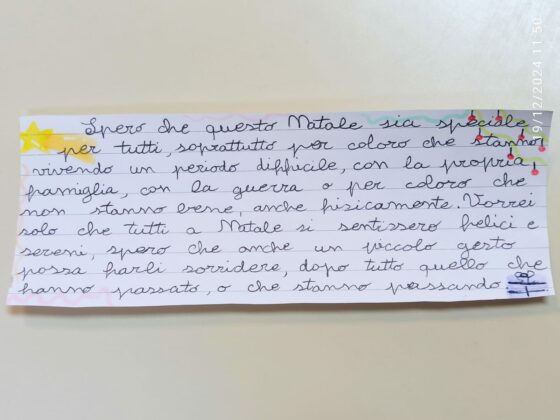 Spero che questo Natale sia speciale
per tutti, soprattutto per coloro che stanno
vivendo un periodo difficile, con la propria
famiglia, con la guerra o per coloro che
non stanno bene, anche fisicamente. Vorrei
solo che tutti a Natale si sentissero felici e
sereni, spero che anche un piccolo gesto
possa farli sorridere, dopo tutto quello che
hanno passato, o che stanno passando
19/12/2024 11:50